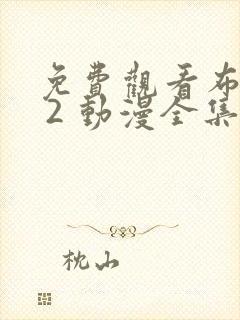 免費觀看布
2 動漫全集
枕山